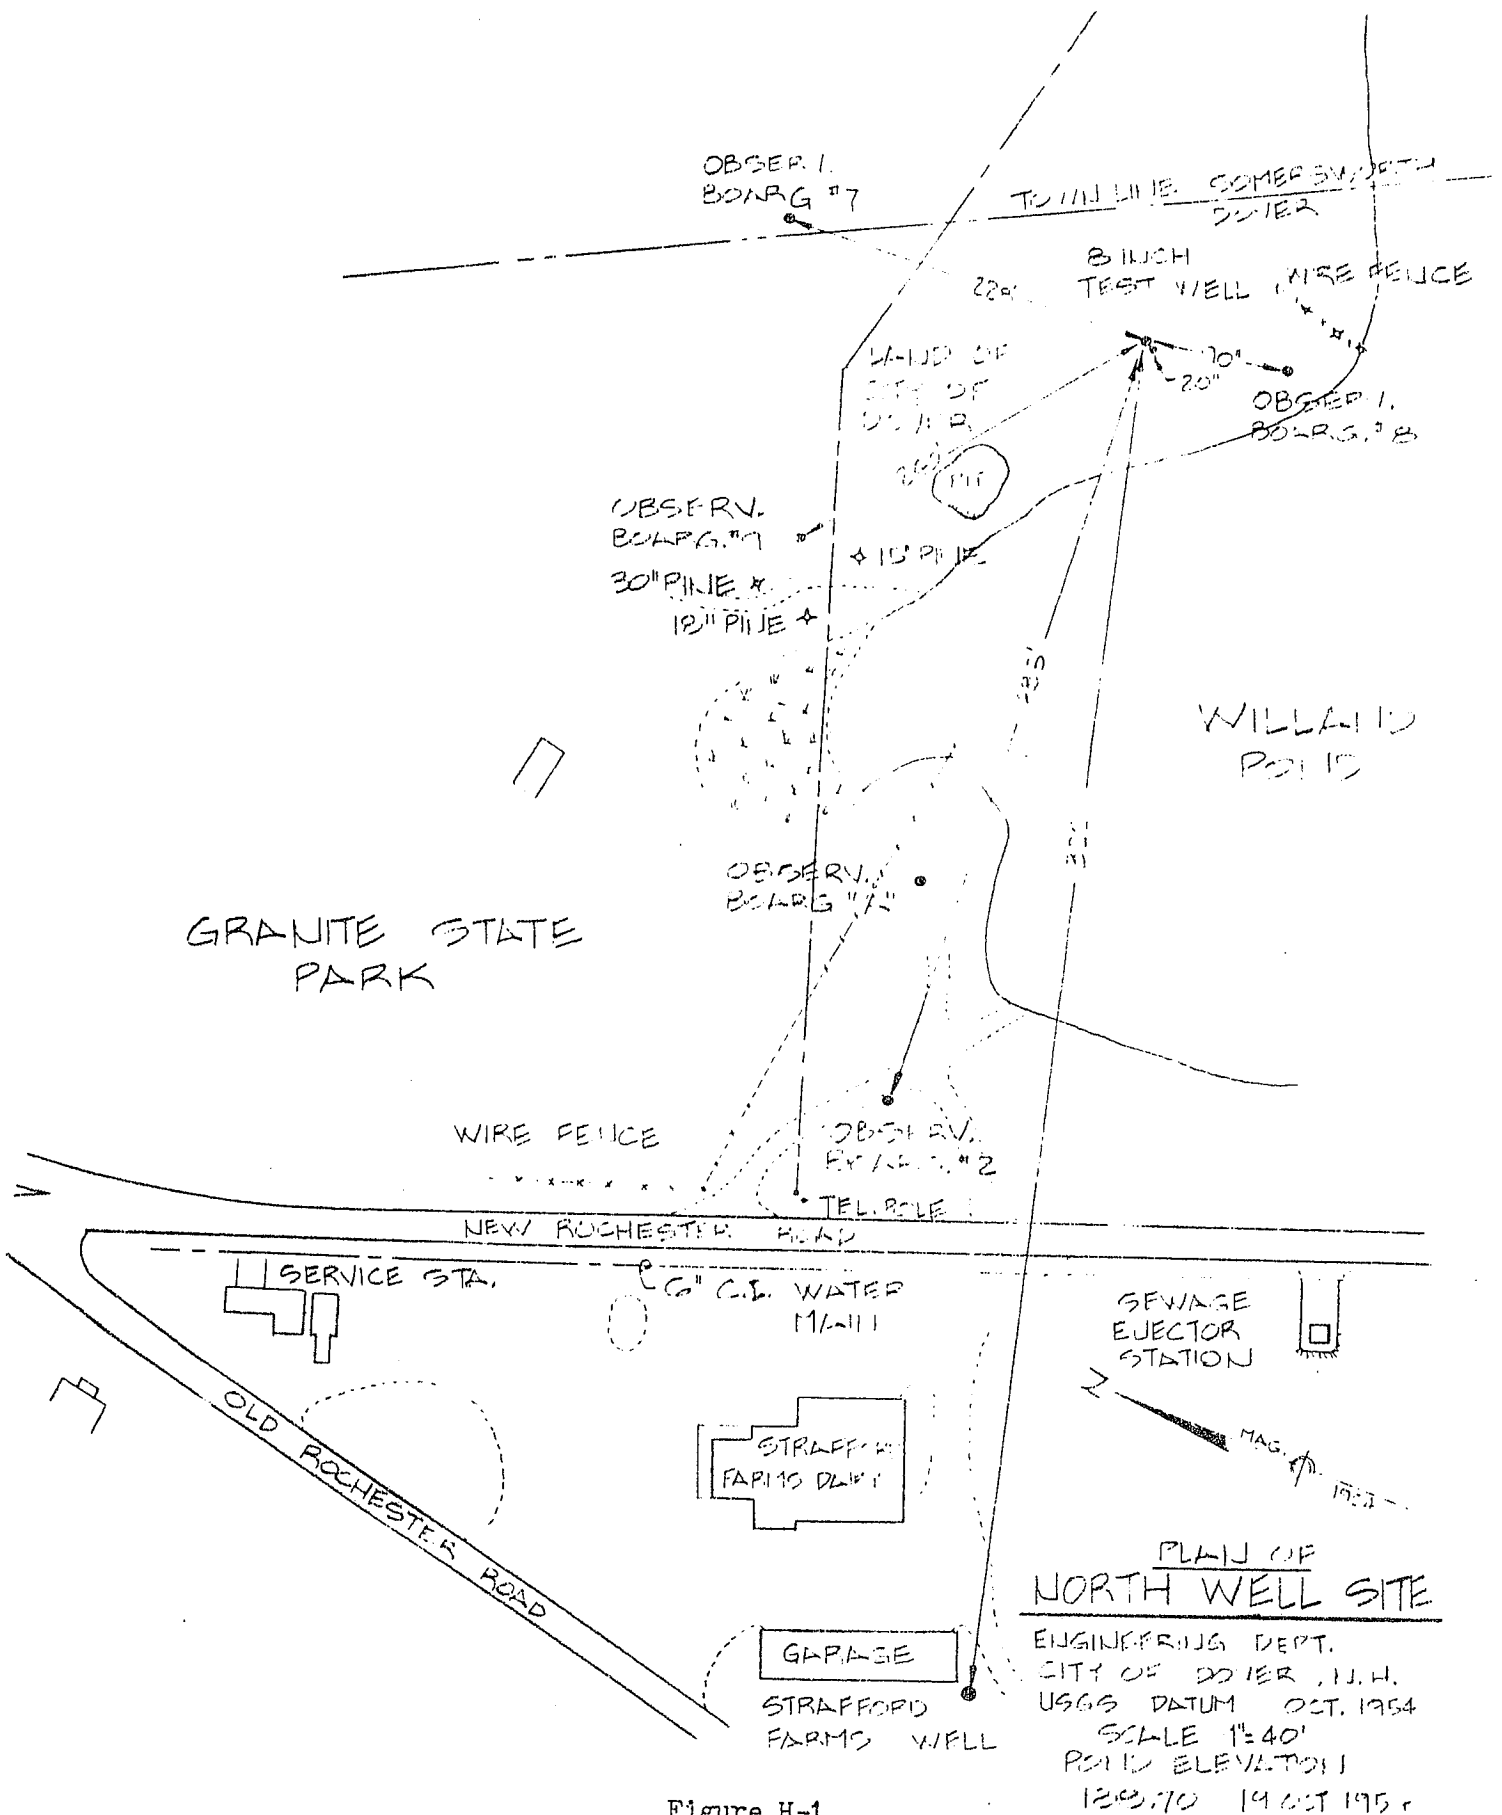 OBSERV.
BOARG #7
TOWN LINE SOMERSWORTH
DOVER
8 INCH
TEST WELL
WIRE FENCE
LAND OF
CITY OF
DOVER
70'
20"
OBSERV.
BOARG. #8
PIT
OBSERV.
BOARG.
15" PINE
30" PINE
18" PINE
WILLAND
POND
OBSERV.
BOARG "A"
GRANITE STATE
PARK
WIRE FENCE
OBSERV.
BOARG. #2
TEL. POLE
NEW ROCHESTER ROAD
SERVICE STA.
6" C.I. WATER
MAIN
SEWAGE
EJECTOR
STATION
OLD ROCHESTER ROAD
STRAFFORD
FARMS DAIRY
MAG.
1954
GARAGE
STRAFFORD
FARMS WELL
PLAN OF
NORTH WELL SITE
ENGINEERING DEPT.
CITY OF DOVER, N.H.
USGS DATUM OCT. 1954
SCALE 1"=40'
POND ELEVATION
19 OCT
Figure H-1